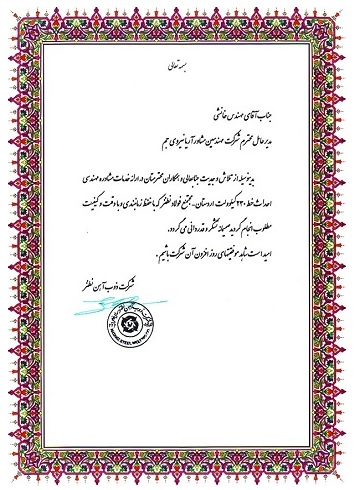 بسمه تعالی
جناب آقای مهندس خانشی
مدیر عامل محترم شرکت مهندسین مشاور آریا نیروی جم
بدینوسیله از تلاش و جدیت جنابعالی و همکاران محترمتان در ارائه خدمات مشاوره مهندسی
احداث خط ۲۳۰ کیلوولت اردستان - مجتمع فولاد نطنز که با حفظ زمانبندی و با دقت و کیفیت
مطلوب انجام گردید صمیمانه تشکر و قدردانی می گردد.
امید است شاهد موفقیتهای روز افزون آن شرکت باشیم.
شرکت ذوب آهن نطنز